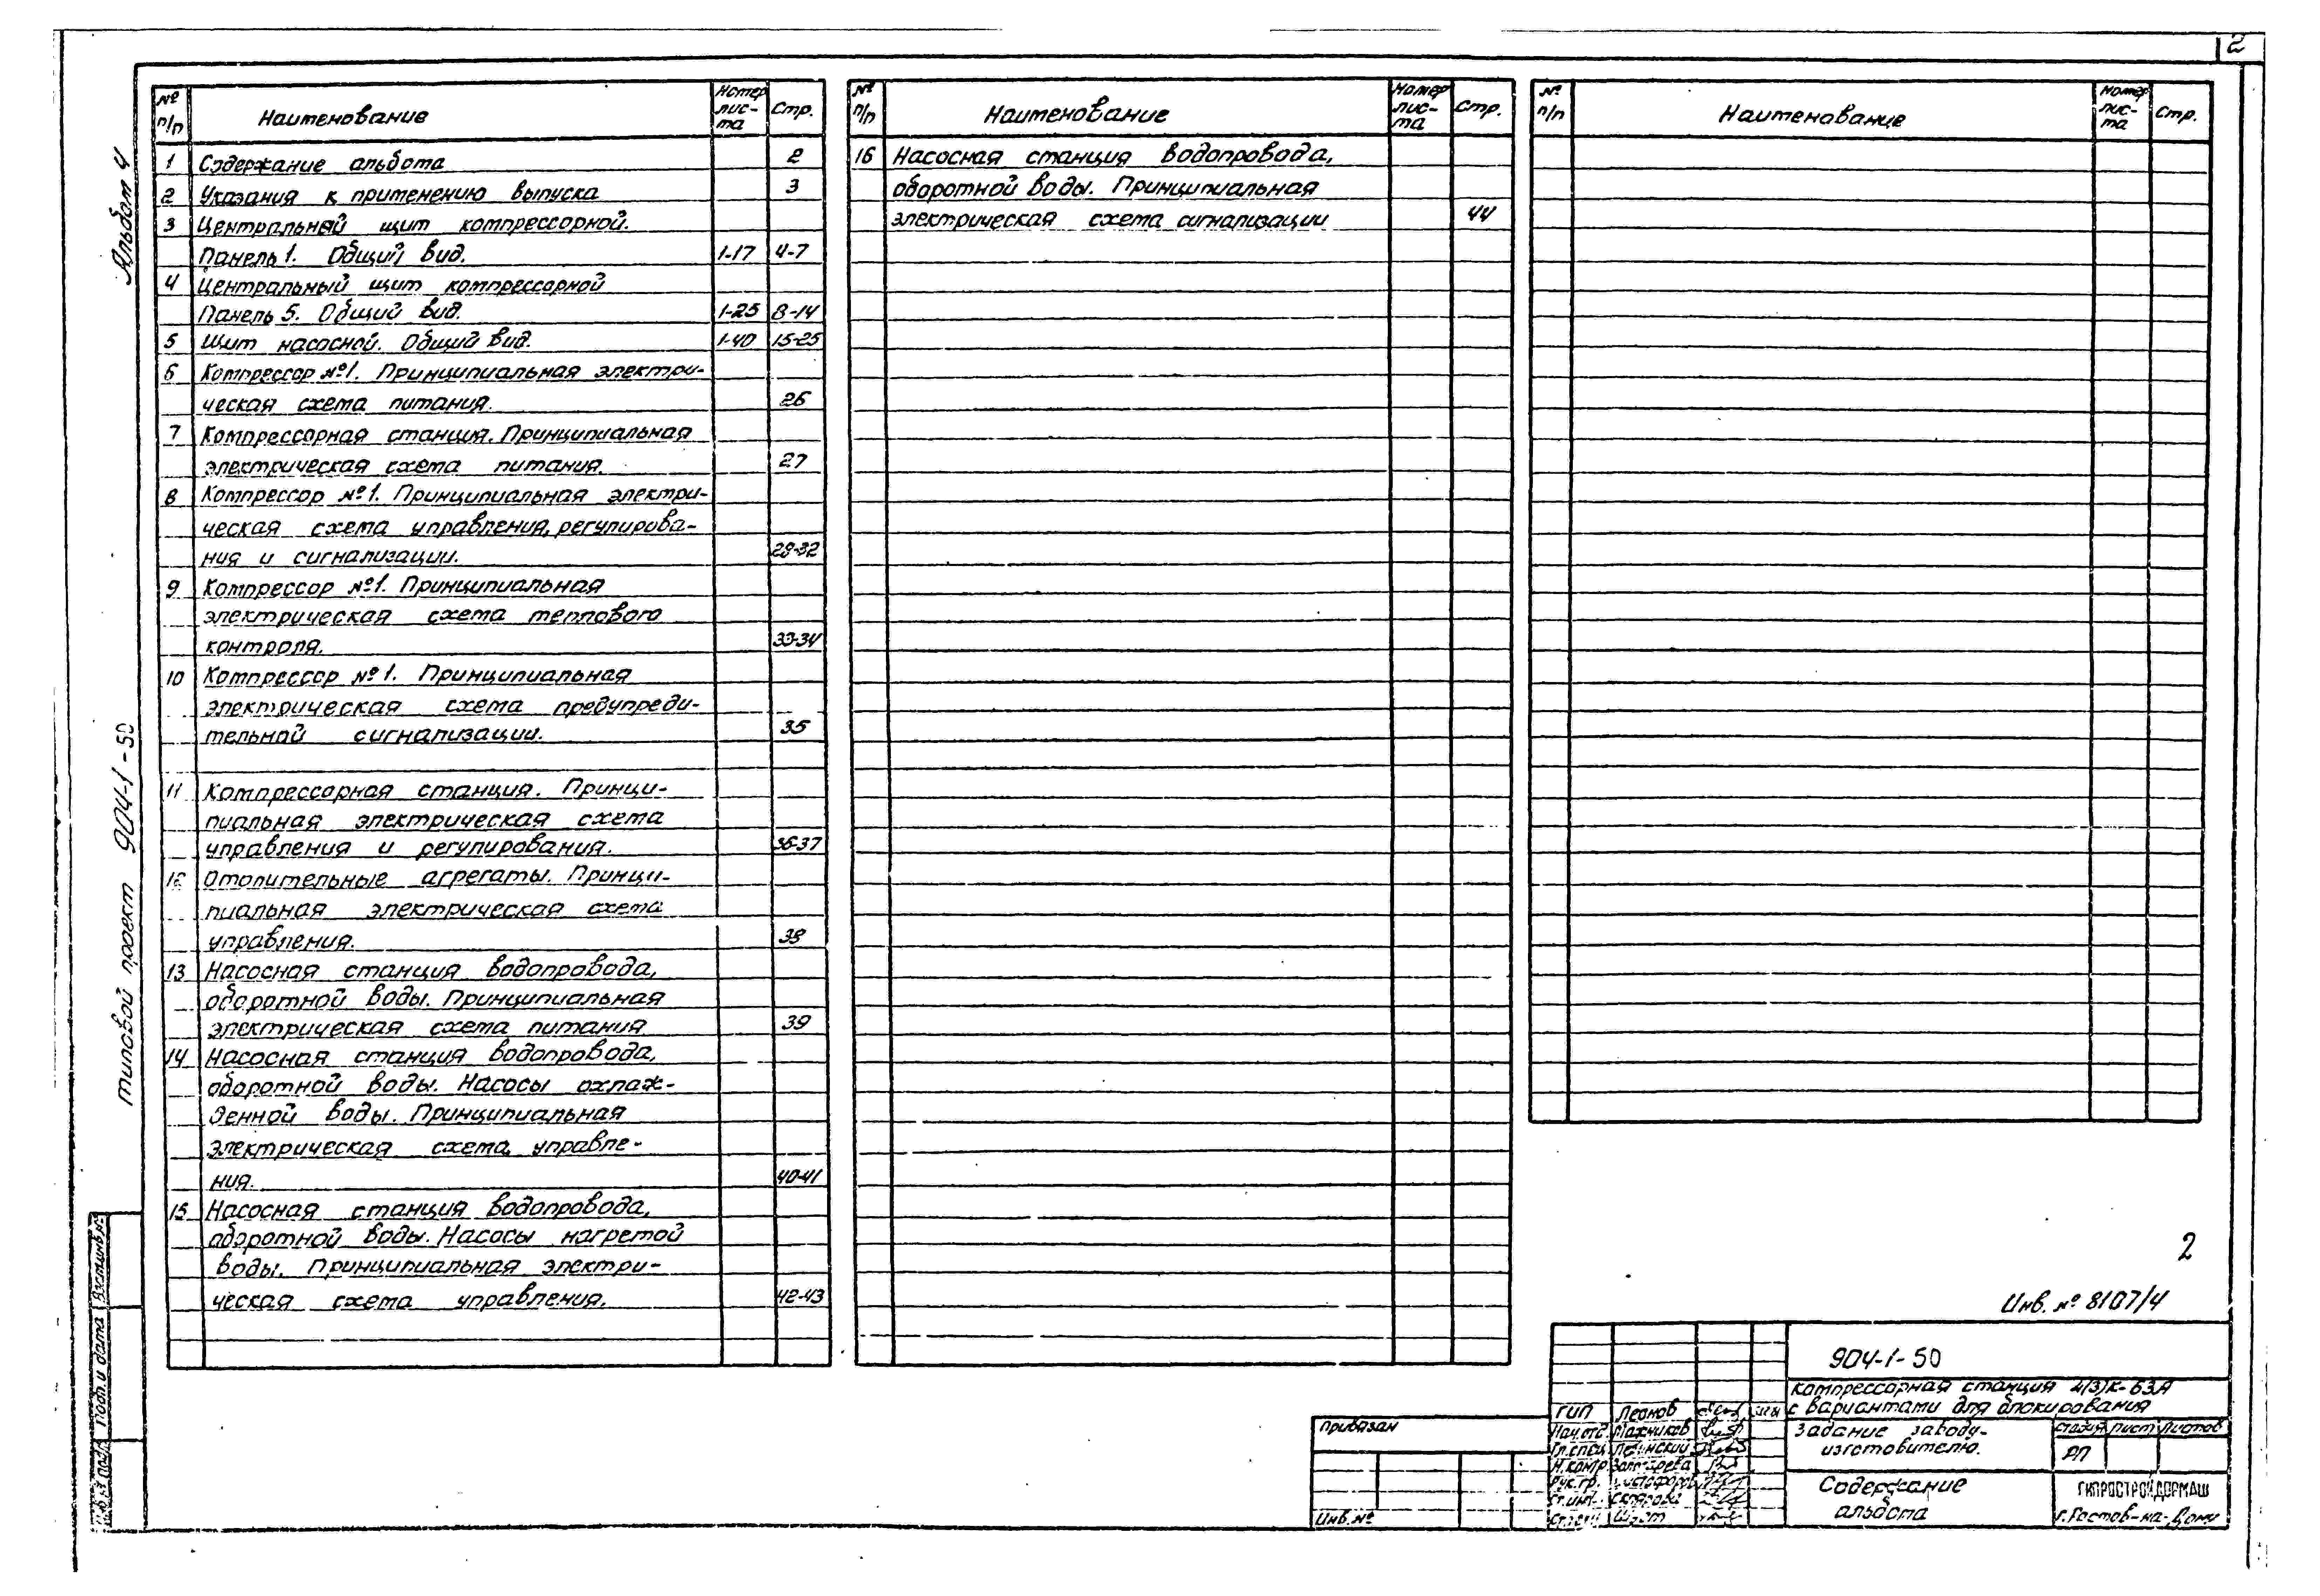 2
Альбом 4
типовой проект 904-1-50
№ п/п Наименование Номер лис-та Стр.
1 Содержание альбома 2
2 Указания к применению выпуска 3
3 Центральный щит компрессорной.
Панель 1. Общий вид. 1-17 4-7
4 Центральный щит компрессорной
Панель 5. Общий вид. 1-25 8-14
5 Щит насосной. Общий вид. 1-40 15-25
6 Компрессор №1. Принципиальная электри-
ческая схема питания. 26
7 Компрессорная станция. Принципиальная
электрическая схема питания. 27
8 Компрессор №1. Принципиальная электри-
ческая схема управления, регулирова-
ния и сигнализации. 28-32
9 Компрессор №1. Принципиальная
электрическая схема теплового
контроля. 33-34
10 Компрессор №1. Принципиальная
электрическая схема предупреди-
тельной сигнализации. 35
11 Компрессорная станция. Принци-
пиальная электрическая схема
управления и регулирования. 36-37
12 Отопительные агрегаты. Принци-
пиальная электрическая схема
управления. 38
13 Насосная станция водопровода,
оборотной воды. Принципиальная
электрическая схема питания 39
14 Насосная станция водопровода,
оборотной воды. Насосы охлаж-
денной воды. Принципиальная
электрическая схема управле-
ния. 40-41
15 Насосная станция водопровода,
оборотной воды. Насосы нагретой
воды. Принципиальная электри-
ческая схема управления. 42-43
№ п/п Наименование Номер лис-та Стр.
16 Насосная станция водопровода,
оборотной воды. Принципиальная
электрическая схема сигнализации 44
№ п/п Наименование Номер лис-та Стр.
2
Инв. № 8107/4
904-1-50
Компрессорная станция 4(3)К-63А
с вариантами для блокирования
Задание заводу-
изготовителю.
стадия лист листов
РП
Содержание
альбома
ГИПРОСТРОЙДОРМАШ
г. Ростов-на-Дону
ГИП Леонов
Нач.отд. Махников
Гл.спец.
Н.контр.
Рук.гр.
Ст.инж.
Привязан
Инв. №
Взам.инв.№
Подп. и дата
Инв.№ подл.